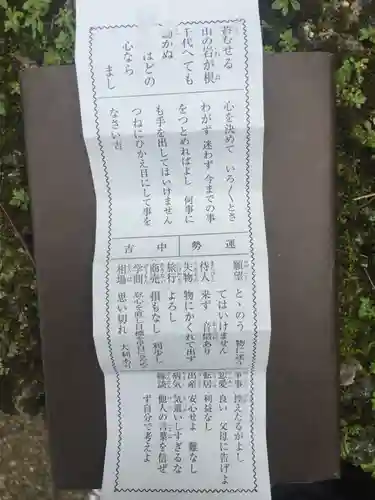 苔むせる
山の岩が根
千代へても
動かぬ
ほどの
心なら
まし
心を決めて いろ〱とさ
わがず 迷わず 今までの事
をつとめればよし 何事に
も手を出してはいけません
つねにひかえ目にして事を
なさい吉
運勢 中吉
願望 とゝのう 物に迷う
てはいけません
待人 来ず 音信あり
失物 物にかくれて出ず
旅行 よろし
商売 損もなし 利少し
学問 安心を直し目標を早目に定めて
相場 思い切れ 大利あり
争事 控えたるがよし
恋愛 良い 父母に告げよ
転居 利益なし
出産 安心せよ 難なし
病気 気遣いしすぎるな
縁談 他人の言葉を信ぜ
ず自分で考えよ